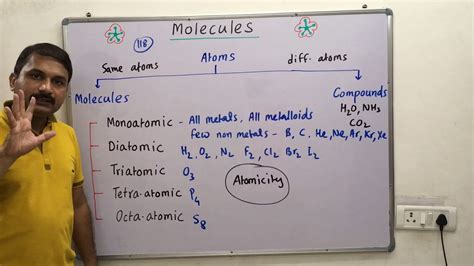 Molecules
118
Atoms
Same atoms
diff. atoms
Molecules
Compounds
H₂O, NH₃
CO₂
Monoatomic - All metals, All metalloids
few non metals - B, C, He, Ne, Ar, Kr, Xe
Diatomic H₂, O₂, N₂ F₂, Cl₂ Br₂ I₂
Triatomic O₃
Tetra-atomic P₄
Octa-atomic S₈
Atomicity